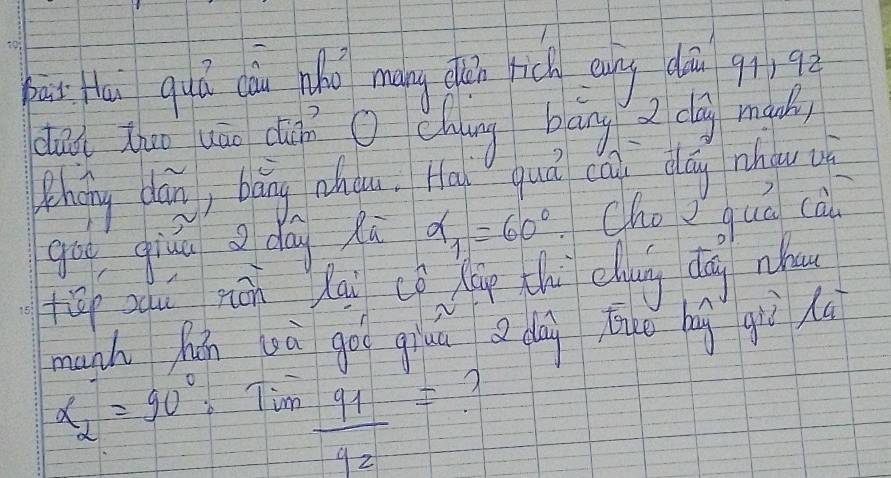 bài: Hai quả cầu nhỏ mang điện tích cùng dấu q1, q2
được treo vào điểm O chung bằng 2 dây mảnh,
không dãn, bằng nhau. Hai quả cầu đẩy nhau và
góc giữa 2 dây là α1 = 60°. Cho 2 quả cầu
tiếp xúc rồi lại cô lập thì chúng đẩy nhau
mạnh hơn và góc giữa 2 dây treo bây giờ là
α2 = 90°. Tìm q1/q2 = ?